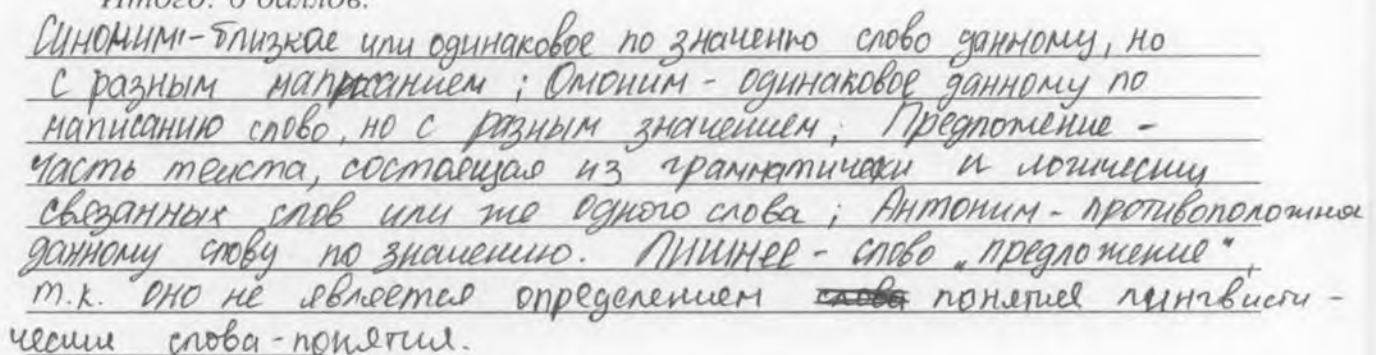 Итого: 6 баллов.
Синоним - близкое или одинаковое по значению слово данному, но
с разным написанием ; Омоним - одинаковое данному по
написанию слово, но с разным значением ; Предложение -
часть текста, состоящая из грамматически и логически
связанных слов или же одного слова ; Антоним - противоположное
данному слову по значению. Лишнее - слово „предложение",
т.к. оно не является определением понятия лингвисти-
ческие слова-понятия.